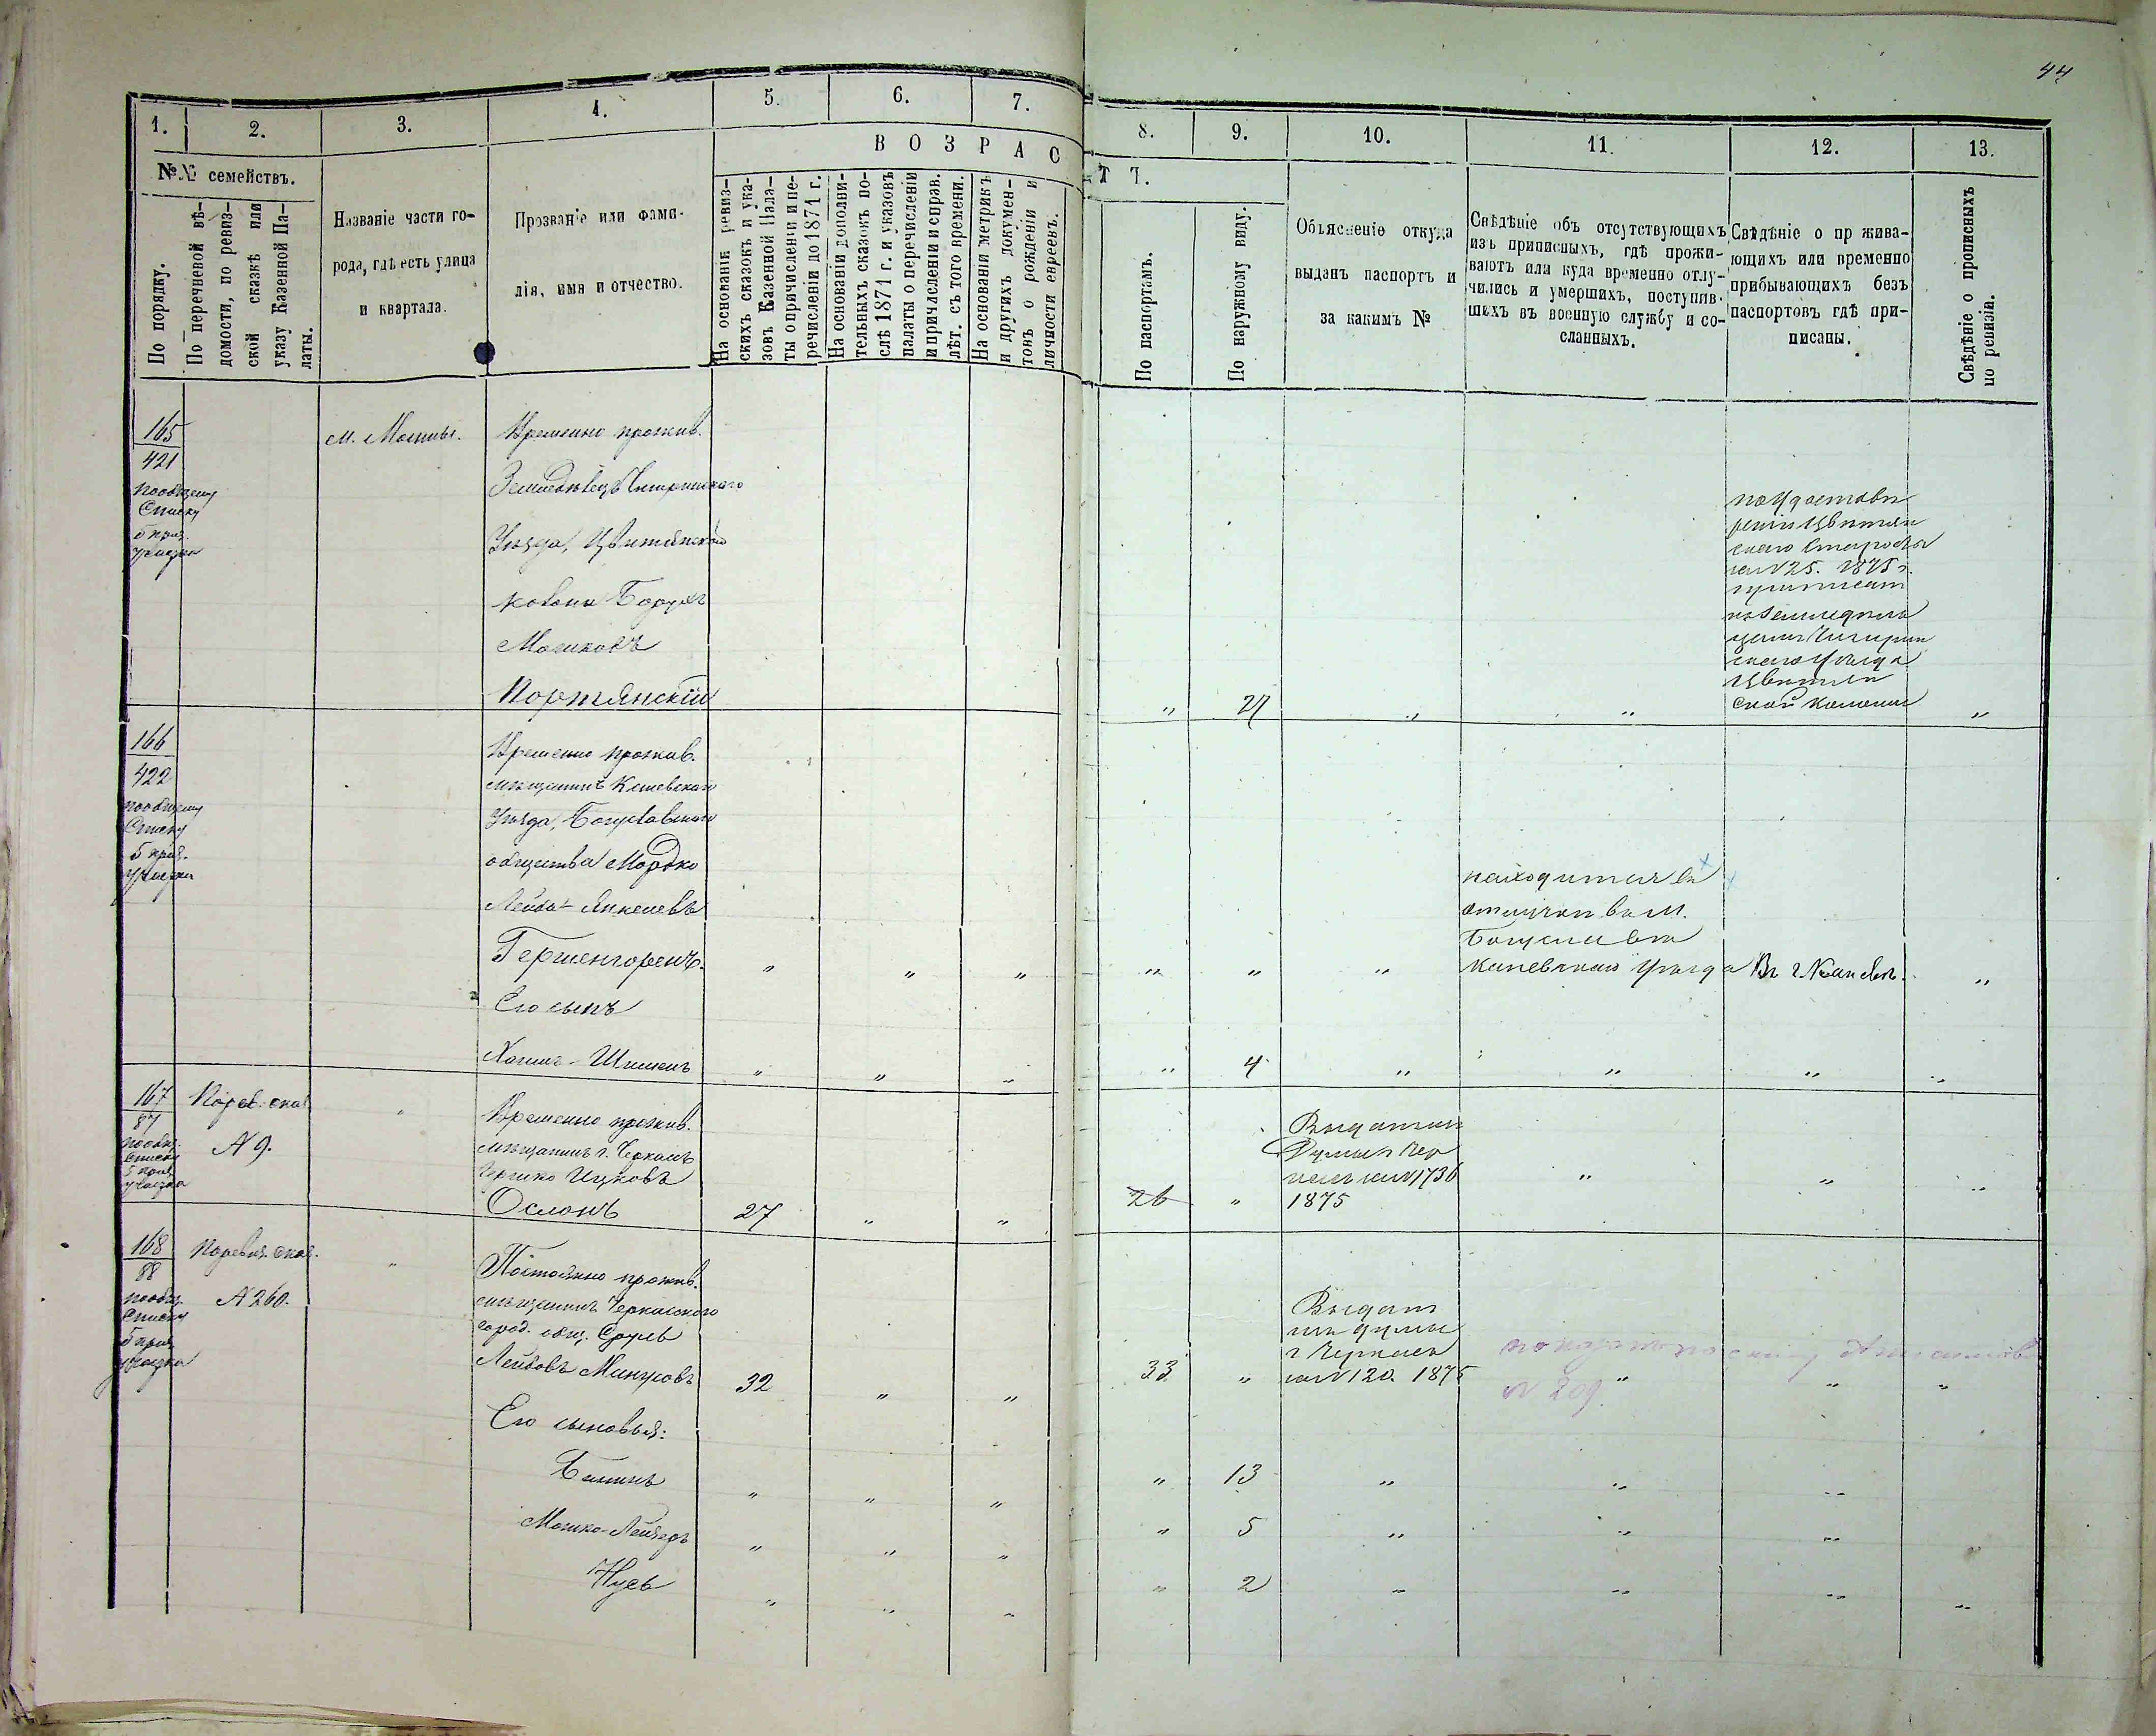 44
1. 2. 3. 4. 5. 6. 7. 8. 9. 10. 11. 12. 13.
№№ семействъ.
По порядку.
По перечневой вѣ-
домости, по ревиз-
ской сказкѣ или
указу Казенной Па-
латы.
Названіе части го-
рода, гдѣ есть улица
и квартала.
Прозваніе или фами-
лія, имя и отчество.
ВОЗРАСТЪ.
На основаніи ревиз-
скихъ сказокъ и ука-
зовъ Казенной Пала-
ты о причисленіи и пе-
речисленіи до 1871 г.
На основаніи дополни-
тельныхъ сказокъ по-
слѣ 1871 г. и указовъ
палаты о перечисленіи
и причисленіи и справ.
лѣт. съ того времени.
На основаніи метрикъ
и другихъ докумен-
товъ о рожденіи и
личности евреевъ.
По паспортамъ.
По наружному виду.
Объясненіе откуда
выданъ паспортъ и
за какимъ №
Свѣдѣніе объ отсутствующихъ
изъ приписныхъ, гдѣ прожи-
ваютъ или куда временно отлу-
чились и умершихъ, поступив-
шихъ въ военную службу и со-
сланныхъ.
Свѣдѣніе о пр жива-
ющихъ или временно
прибывающихъ безъ
паспортовъ гдѣ при-
писаны.
Свѣдѣніе о прописныхъ
по ревизіи.
165
421
по общему
списку
5 приз.
участка
м. Мошны.
Временно прожив.
Земледѣлецъ Чигиринскаго
Уѣзда, Цвитянской
колоніи Борухъ
Мошковъ
Портянскій
" 27 " "
по Удостовѣ
ренію Цвитян
скаго Старосты
за №25. 1875 г.
приписанъ
къ земледѣль
цамъ Чигирин
скаго Уѣзда
Цвитян
ской колоніи
"
166
422
по общему
Списку
5 приз.
участка
Временно прожив.
мѣщанинъ Каневскаго
Уѣзда, Богуславскаго
общества Мордко
Лейба-Янкелевъ
Гершенгоренъ.
" " " " " "
находится въ
отлучкѣ въ м.
Богуславѣ
Каневскаго Уѣзда
Въ г. Каневѣ.
"
Его сынъ
Хаимъ-Шлиома
" " " " 4 " " " "
167
87
по общ.
списку
5 приз.
участка
По рев. сказ.
№ 9.
"
Временно прожив.
мѣщанинъ г. Черкасъ
Гершко Ицковъ
Ослонъ
27 " " 26 "
Выданъ изъ
Думы г. Чер
касъ за №1736
1875
" " "
168
88
по общ.
Списку
5 приз.
участка
По ревиз. сказ.
№ 260.
"
Постоянно прожив.
мѣщанинъ Черкасскаго
город. общ. Сруль
Лейбовъ Манусовъ
32 " " 33 "
Выданъ
изъ думы
г. Черкасъ
за №120. 1875
показанъ по списку
№ 209.
" " "
Его сыновья:
Беніинъ
" " " " 13 " " "
Мошко-Лейзеръ
" " " " 5 " " " "
Нусь
" " " " 2 " " " "